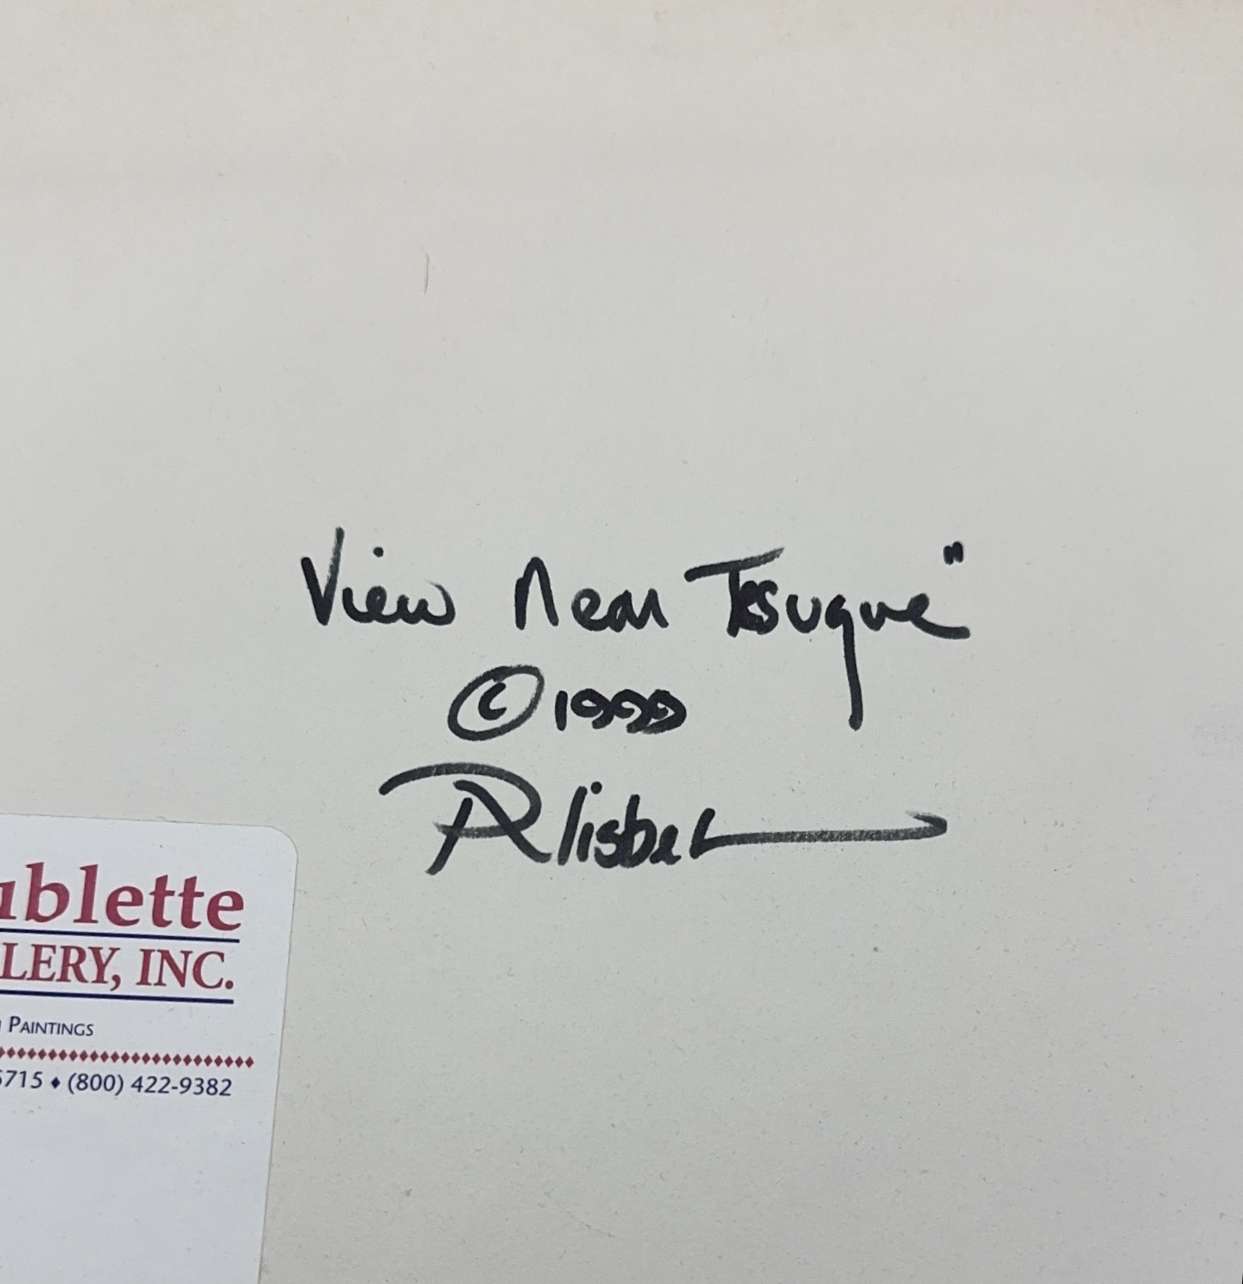 View Near Tesuque"
© 1999
RAlisbel
ublette
LERY, INC.
PAINTINGS
5715 ♦ (800) 422-9382